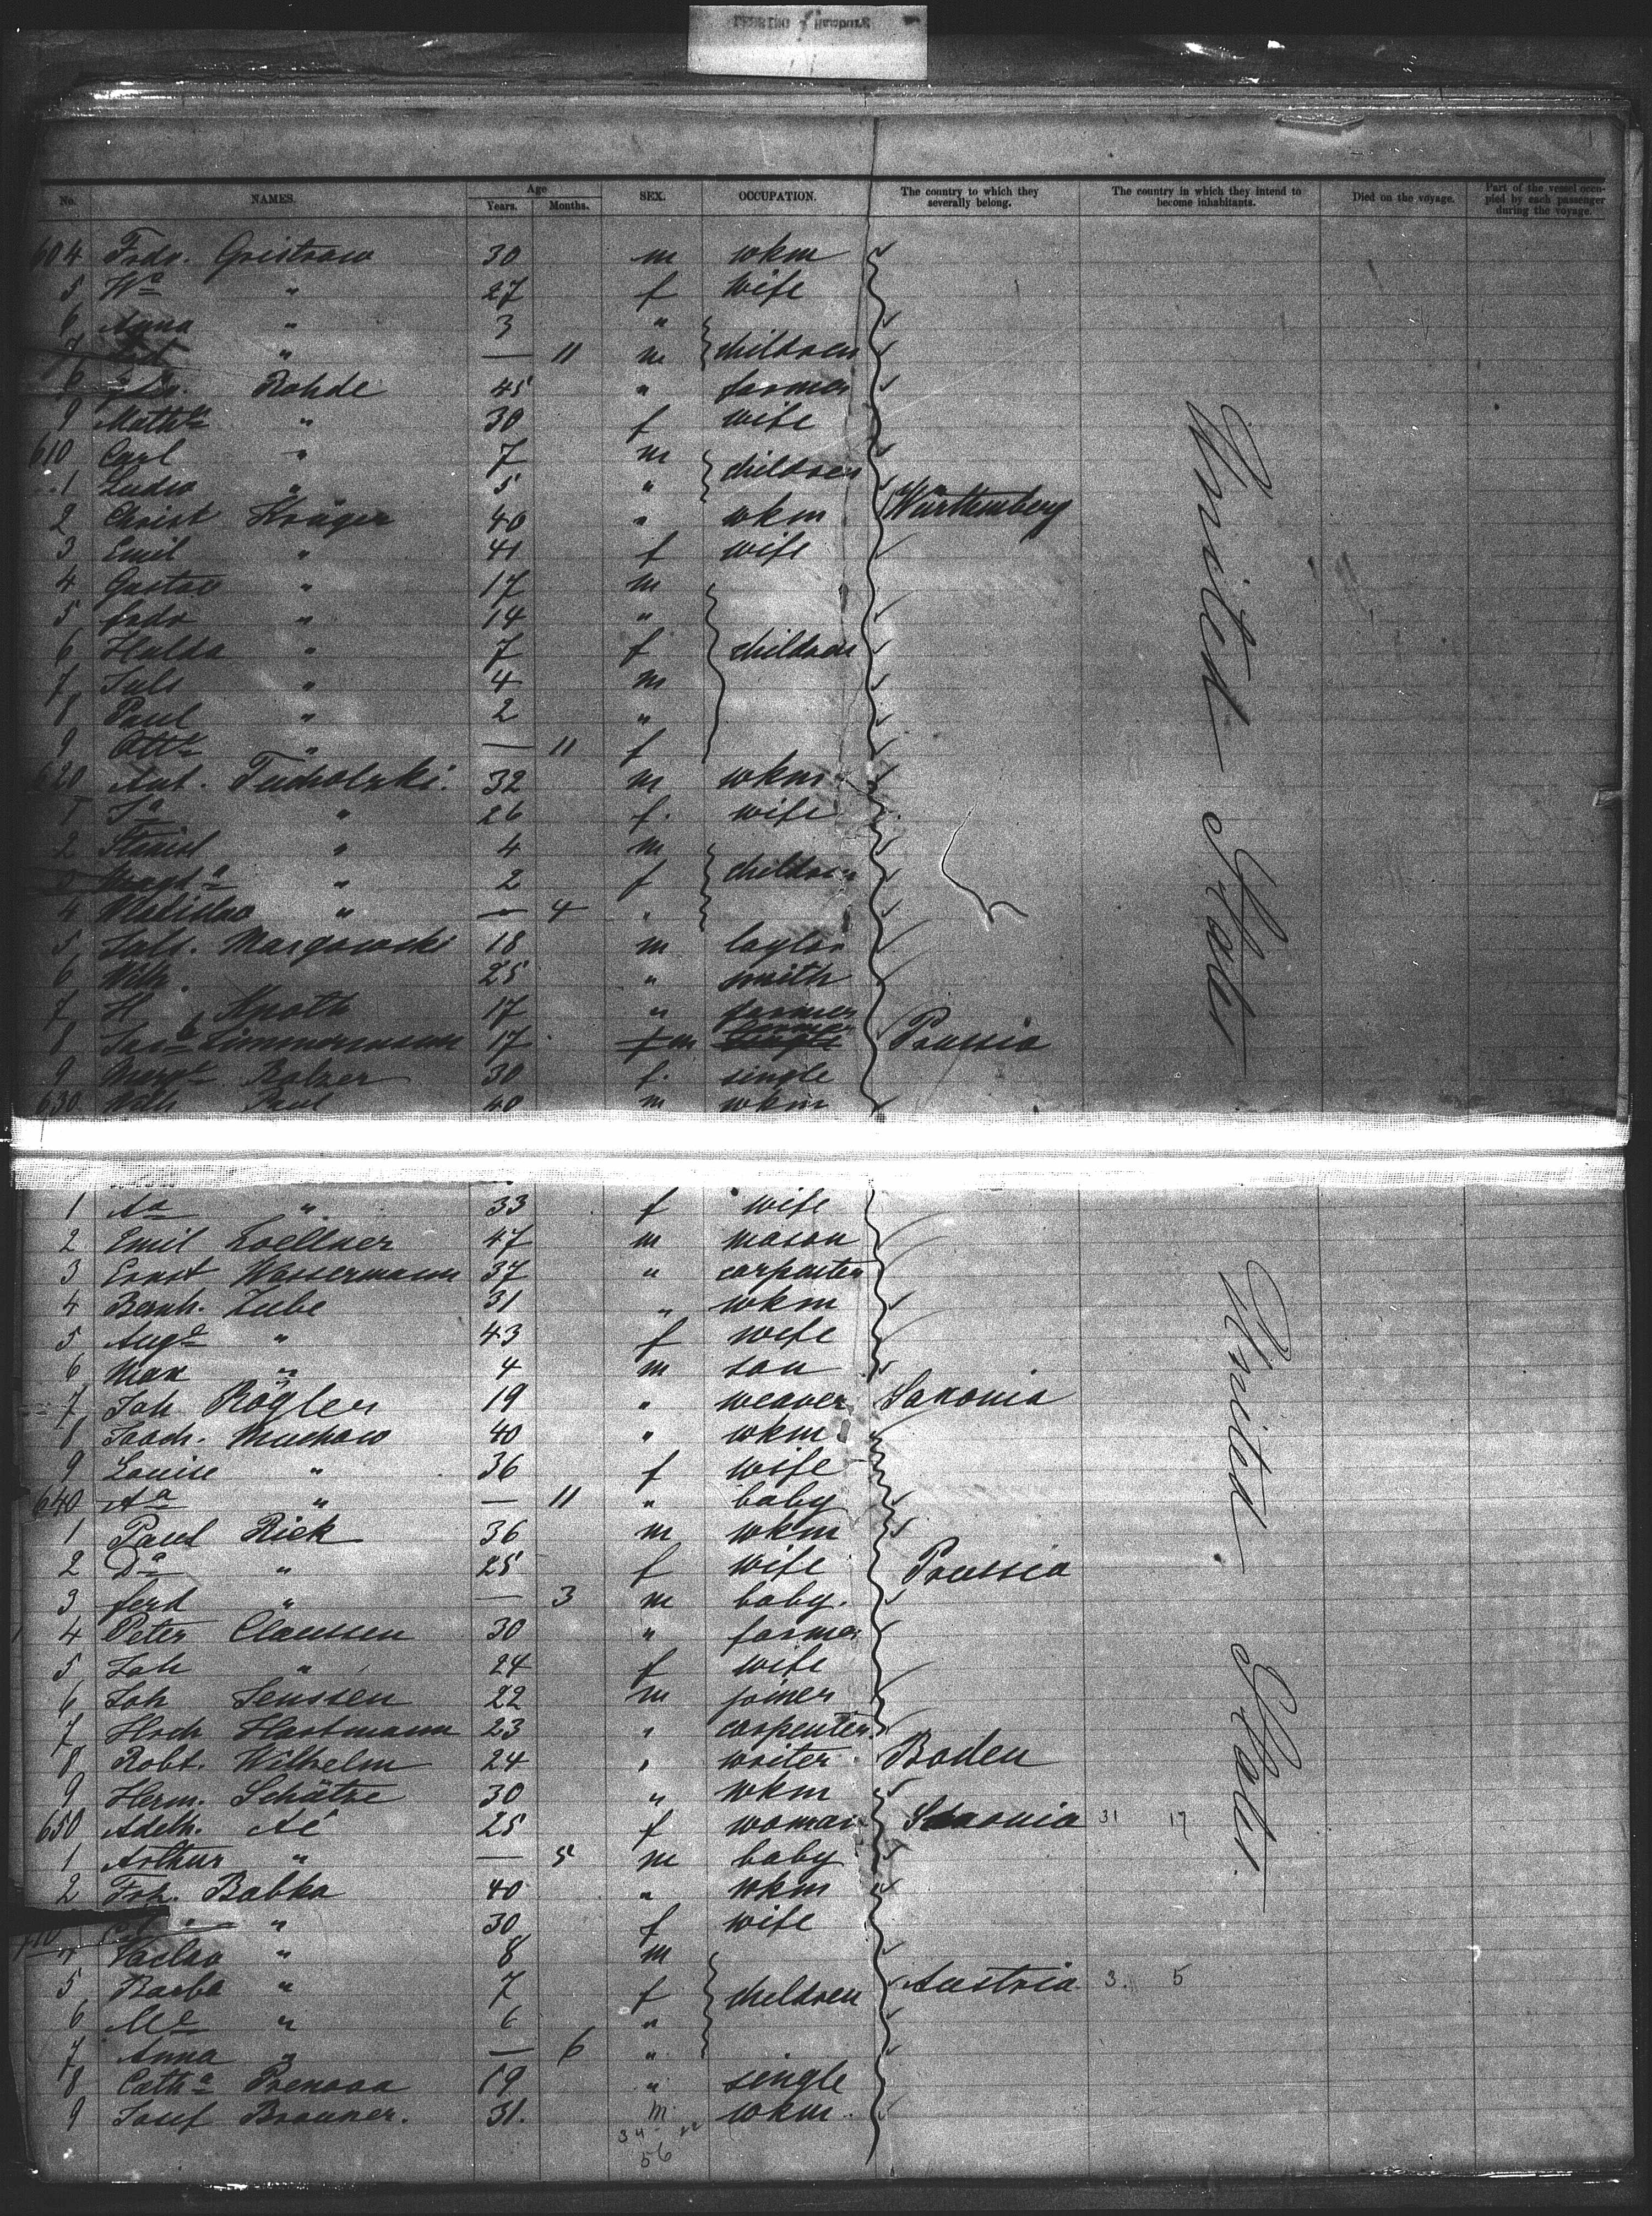 No. NAMES. Age Years. Months. SEX. OCCUPATION. The country to which they severally belong. The country in which they intend to become inhabitants. Died on the voyage. Part of the vessel occupied by each passenger during the voyage.
604 Fredr. Gristrow 30 m wkm
5 Wa " 27 f wife
6 Anna " 3 "
7 " — 11 m children
Rohde 45 " farmer
9 Mathe " 30 f wife
610 Carl " 7 m
1 Ludw " 5 " children
2 Christ Krüger 40 " wkm Württemberg
3 Emil " 41 f wife
4 Gustav " 17 m
5 fredr " 14 "
6 Hulda " 7 f children
7 Juls " 4 m
8 Paul " 2 "
9 Otte " — 11 f
620 Ant. Tucholski. 32 m wkm
1 Ja " 26 f. wife
2 Stanisl " 4 m
" 2 f children
4 Vladislav " — 4 "
5 Juls. Margowski 18 m taylor
6 Wilh. 25 " smith
7 H Knoth 17 " farmer
8 Zimmermann 17 f m farmer Prussia
9 Margt Balzer 30 f. single
630 Wilh Paul 40 m wkm
United States
1 Aa " 33 f wife
2 Emil Zoellner 47 m mason
3 Ernst Wassermann 37 " carpenter
4 Bernh. Zube 31 " wkm
5 Auge " 43 f wife
6 Max " 4 m son
7 Joh Rögler 19 " weaver Saxonia
8 Joach. Muchow 40 " wkm
9 Louise " 36 f wife
640 Aa " — 11 " baby
1 Paul Rick 36 m wkm
2 Da " 25 f wife Prussia
3 ferd " — 3 m baby.
4 Peter Claussen 30 " farmer
5 Joh " 24 f wife
6 Joh Jenssen 22 m joiner
7 Hrch Hartmann 23 " carpenter
8 Robt. Wilhelm 24 " writer Baden
9 Herm. Schätze 30 " wkm
650 Adelh. Aé 25 f woman Saxonia 31 17
1 Arthur " — 5 m baby
2 Frz. Babka 40 " wkm
" 30 f wife
Vaclav " 8 m
5 Barba " 7 f children Austria 3. 5
6 Me " 6 "
7 Anna " — 6 "
8 Catha Prenosa 19 " single
9 Josef Brauner. 31. m. wkm
34 22
56
United States